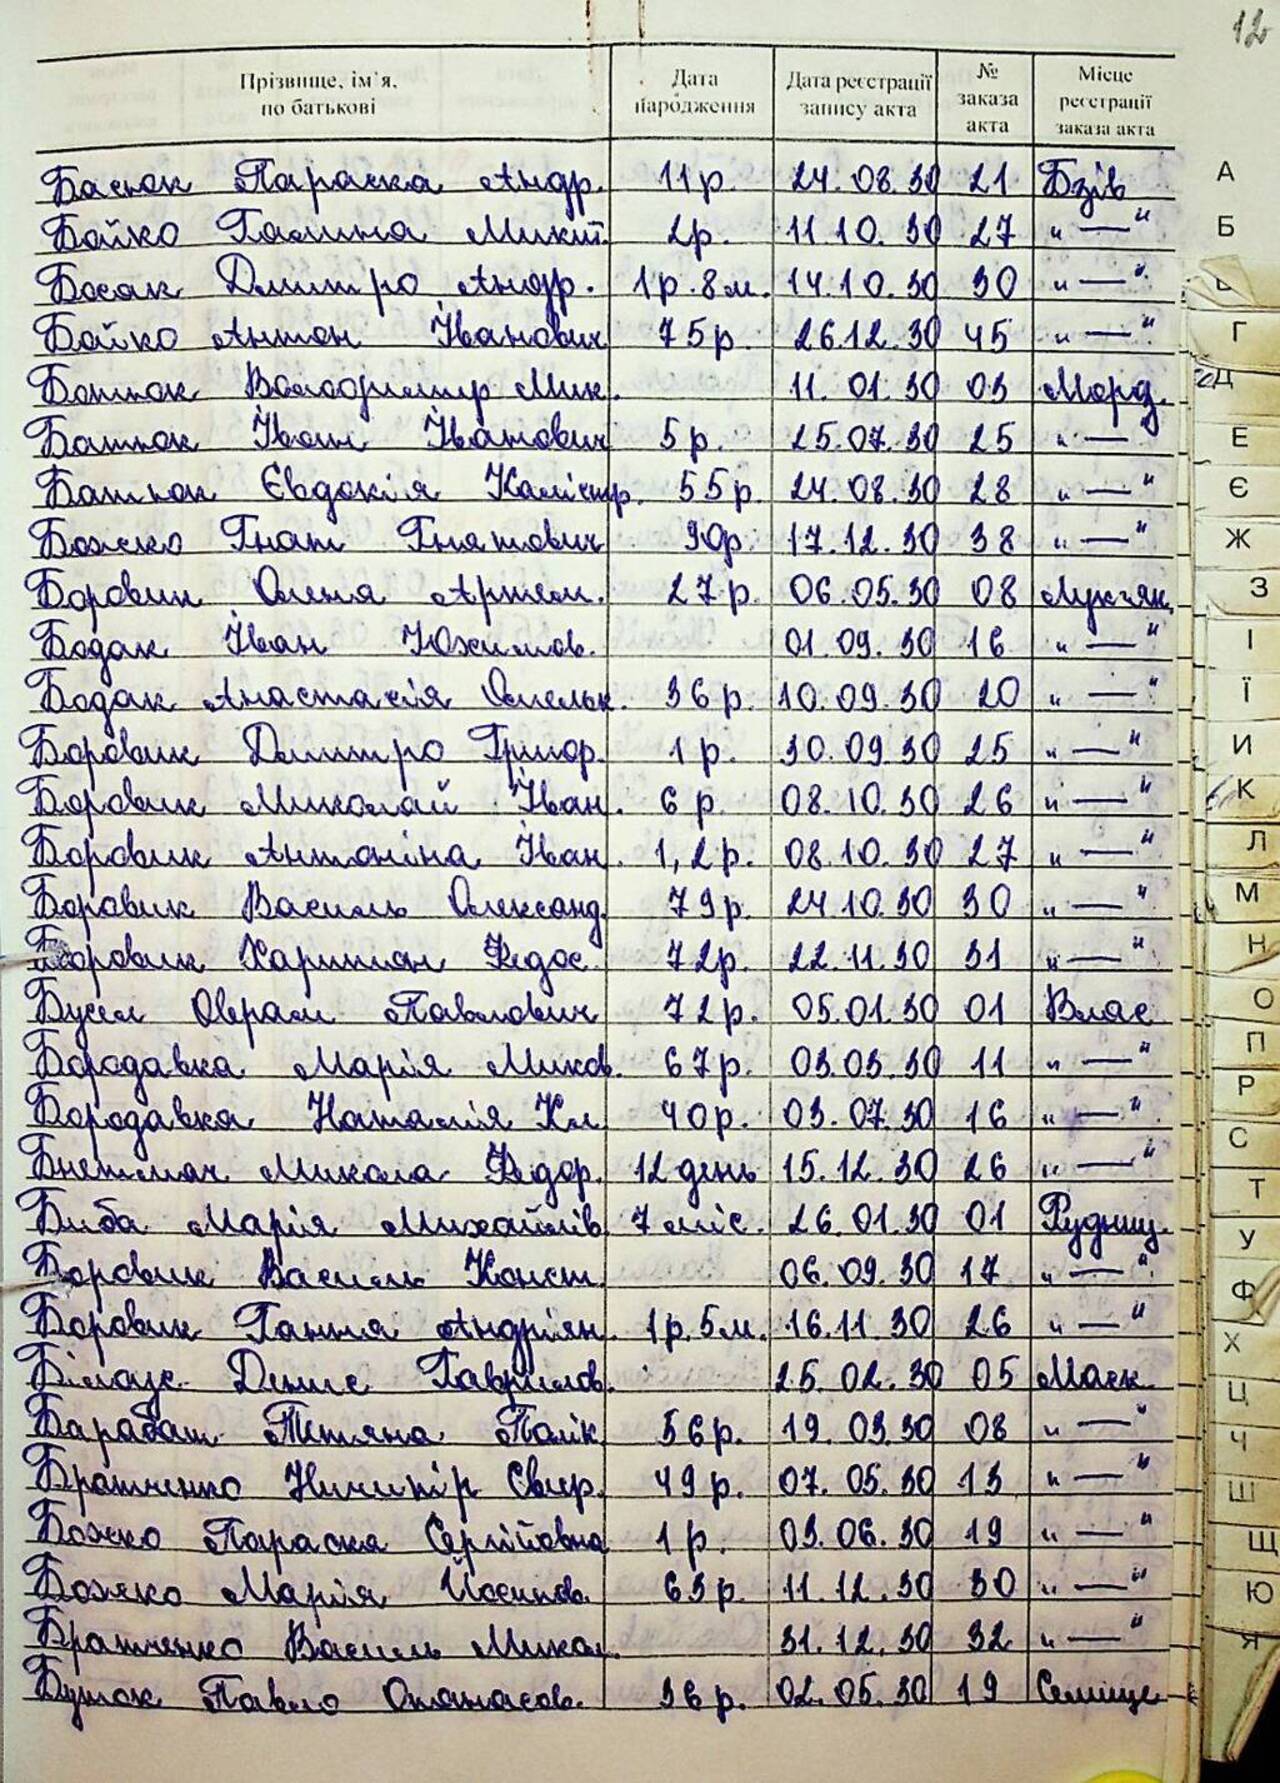 12
Прізвище, ім'я, по батькові Дата народження Дата реєстрації запису акта № заказа акта Місце реєстрації заказа акта
Басюк Параска Андр. 11 р. 24.08.30 21 Бзів
Бойко Галина Микит. 2 р. 11.10.30 27 „ — "
Босак Дмитро Андр. 1 р. 8 м. 14.10.30 30 „ — "
Бойко Антон Іванович 75 р. 26.12.30 45 „ — "
Батюк Володимир Мик. 11.01.30 03 Морд.
Батюк Іван Іванович 5 р. 25.07.30 25 „ —
Батюк Євдокія Калістр. 55 р. 24.08.30 28 „ — "
Божко Гнат Гнатович 90р. 17.12.30 38 „ — "
Боровик Олена Артем. 27 р. 06.05.30 08 Лук'ян.
Бодак Іван Юхимов. 01.09.30 16 „ — "
Бодак Анастасія Омельк. 36 р. 10.09.30 20 „ — "
Боровик Дмитро Григор. 1 р. 30.09.30 25 „ — "
Боровик Миколай Іван. 6 р. 08.10.30 26 „ — "
Боровик Антоніна Іван. 1,2 р. 08.10.30 27 „ — "
Боровик Василь Олександ. 79 р. 24.10.30 30 „ — "
Боровик Харитон Федос. 72р. 22.11.30 31 „ — "
Бусел Оврам Павлович 72 р. 05.01.30 01 Влас
Бородавка Марія Миков. 67 р. 03.03.30 11 „ — "
Бородавка Наталія Кл. 40 р. 03.07.30 16 „ — "
Микола Федор. 12 день 15.12.30 26 „ — "
Биба Марія Михайлів. 7 міс. 26.01.30 01 Рудниц.
Боровик Василь Конст. 06.09.30 17 „ — "
Боровик Ганна Андріян. 1 р. 5 м. 16.11.30 26 „ — "
Білоус Денис Гаврилов. 25.02.30 05 Маск.
Барабаш Тетяна Полік. 56 р. 19.03.30 08 „ — "
Братченко Ничипір Свир. 49 р. 07.05.30 13 „ — "
Божко Параска Сергіївна 1 р. 03.06.30 19 „ — "
Божко Марія Йосипов. 63 р. 11.12.30 30 „ — "
Братченко Василь Микол. 31.12.30 32 „ — "
Павло Опанасов. 36 р. 02.05.30 19 Селище
А
Б
Г
Д
Е
Є
Ж
З
І
Ї
И
К
Л
М
Н
О
П
Р
С
Т
У
Ф
Х
Ц
Ч
Ш
Щ
Ю
Я